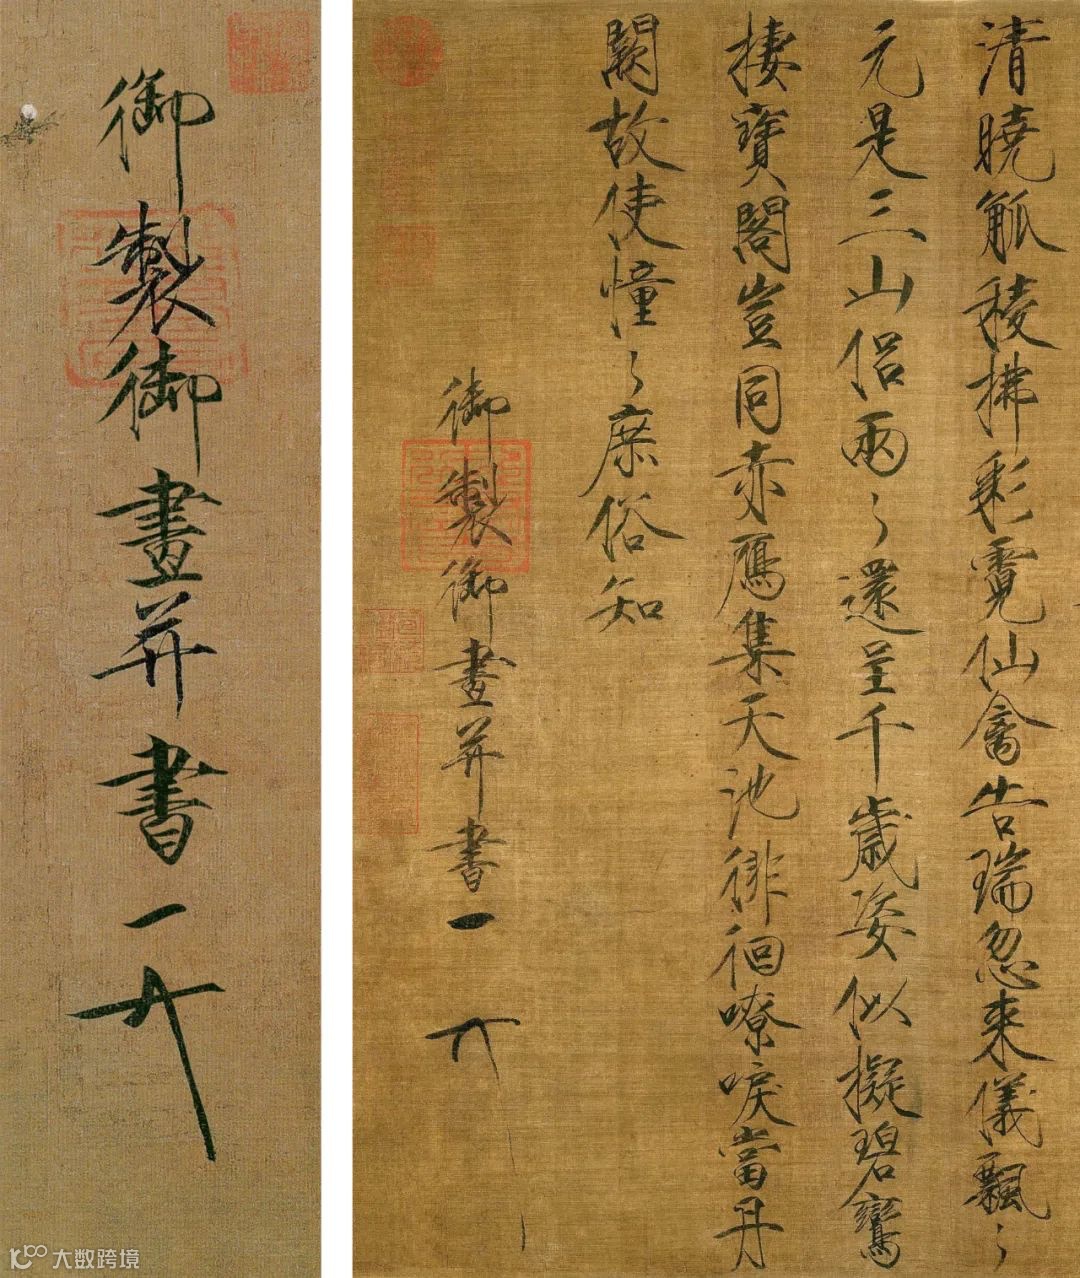 御製御畫并書一
清曉觚稜拂彩霓仙禽告瑞忽来儀飄々
元是三山侶兩々還呈千歲姿似擬碧鸞
棲寶閣豈同赤鴈集天池徘徊嘹唳當丹
闕故使憧々庶俗知
御製御畫并書一
大数跨境